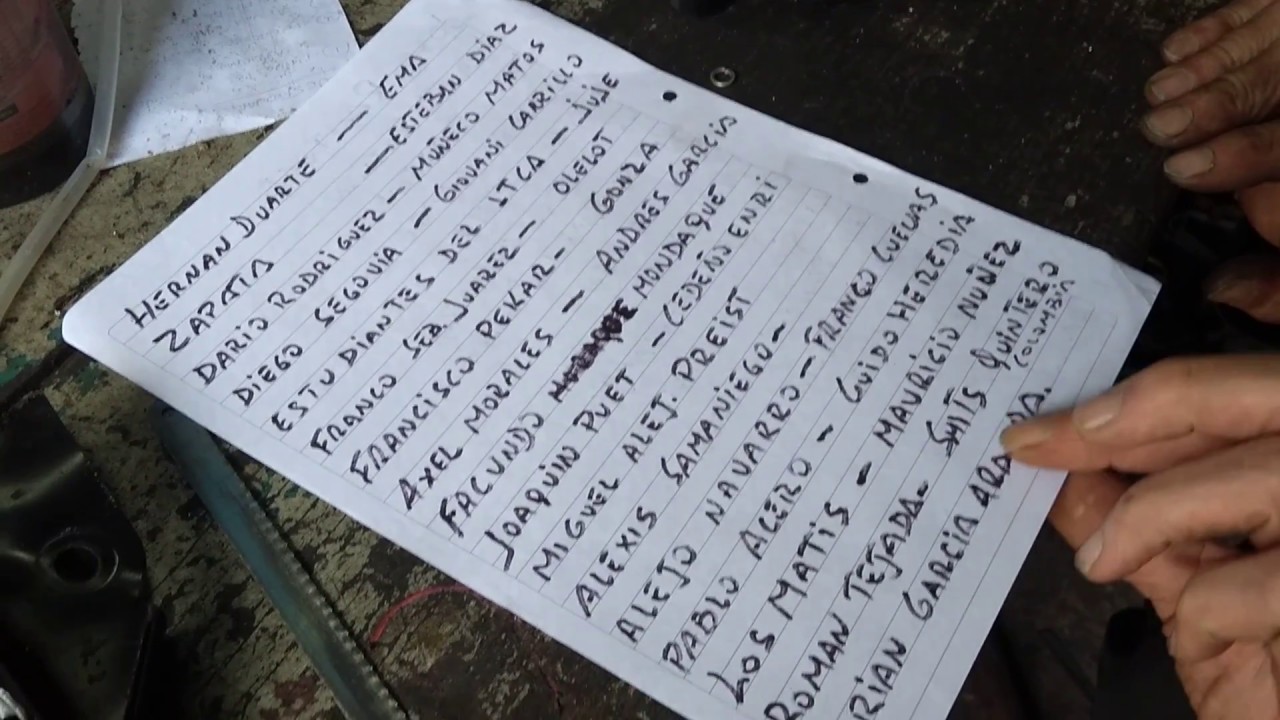 HERNAN DUARTE — EMA
ZAPATA — ESTEBAN DIAZ
DARIO RODRIGUEZ — MUÑECO MATOS
DIEGO SEGOVIA — GIOVANI CARRILLO
ESTUDIANTES DEL ITCA — JUJE
FRANCO SEB. JUAREZ — OLELOT
FRANCISCO PEKAR — GONZA
AXEL MORALES — ANDRES GARCIS
FACUNDO MONDAQUE
JOAQUIN PUET — CEDEÑO ENRI
MIGUEL ALEJ. PREIST
ALEXIS SAMANIEGO —
ALEJO NAVARRO — FRANCO CUEVAS
PABLO ACERO - GUIDO HEREDIA
LOS MATIS — MAURICIO NUÑEZ
ROMAN TEJADA - QUINTERO
COLOMBIA
RIAN GARCIA